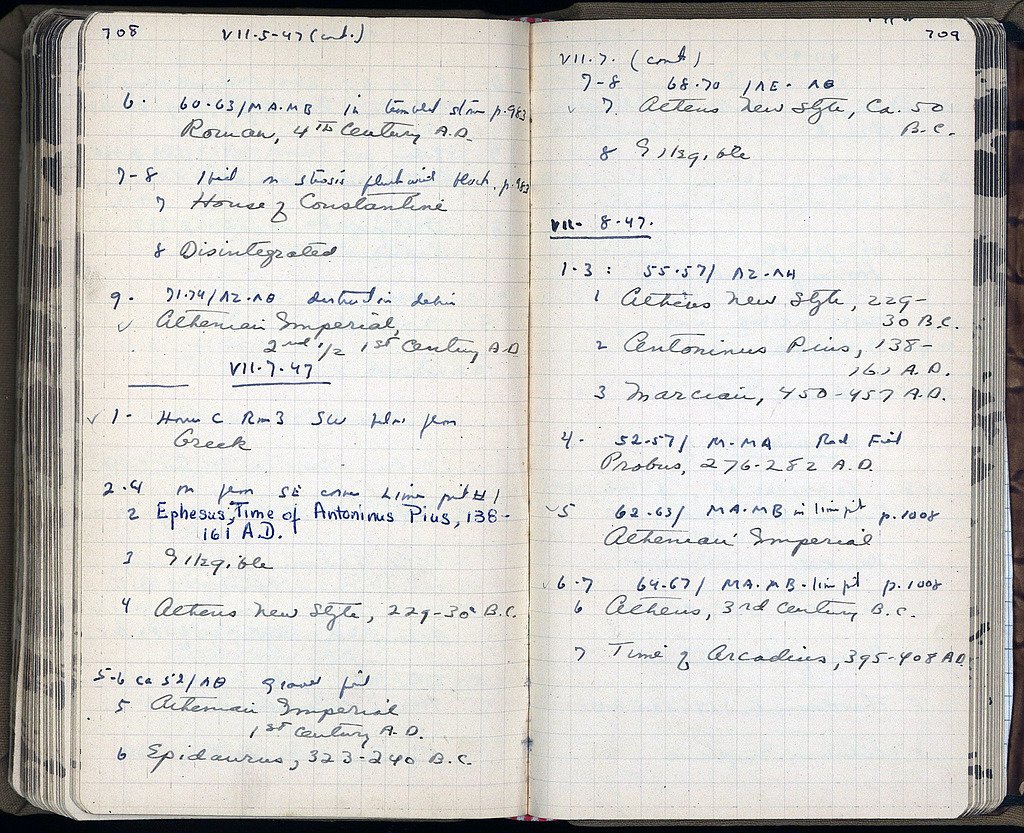 708
VII-5-47 (cont.)
6. 60-63/ΜΑ-ΜΒ in tumbled stones p. 983
Roman, 4TH Century A.D.
7-8 Ibid on stosis block, p. 983
7 House of Constantine
8 Disintegrated
9. 71-74/ΛΖ-ΛΘ destruction debris
✓ Athenian Imperial,
2nd 1/2 1st Century A.D.
VII-7-47
✓ 1- House C Rm 3 SW
Greek
2-4 on SE corner Lime pit #1
2 Ephesus, Time of Antoninus Pius, 138-
161 A.D.
3 Illegible
4 Athens New Style, 229-30 B.C.
5-6 ca 52/ΛΘ gravel fill
5 Athenian Imperial
1st Century A.D.
6 Epidaurus, 323-240 B.C.
709
VII.7. (cont)
7-8 68-70 /ΛΕ-ΛΘ
✓ 7. Athens New Style, Ca. 50
B.C.
8 Illegible
VII- 8-47.
1-3: 55-57/ ΛΖ-ΛΗ
1 Athens New Style, 229-
30 B.C.
2 Antoninus Pius, 138-
161 A.D.
3 Marcian, 450-457 A.D.
4. 52-57/ Μ-ΜΑ Red Fill
Probus, 276-282 A.D.
✓ 5 62-63/ ΜΑ-ΜΒ in lime pit p. 1008
Athenian Imperial
✓ 6-7 64-67/ ΜΑ-ΜΒ-lime pit p. 1008
6 Athens, 3rd Century B.C.
7 Time of Arcadius, 395-408 A.D.